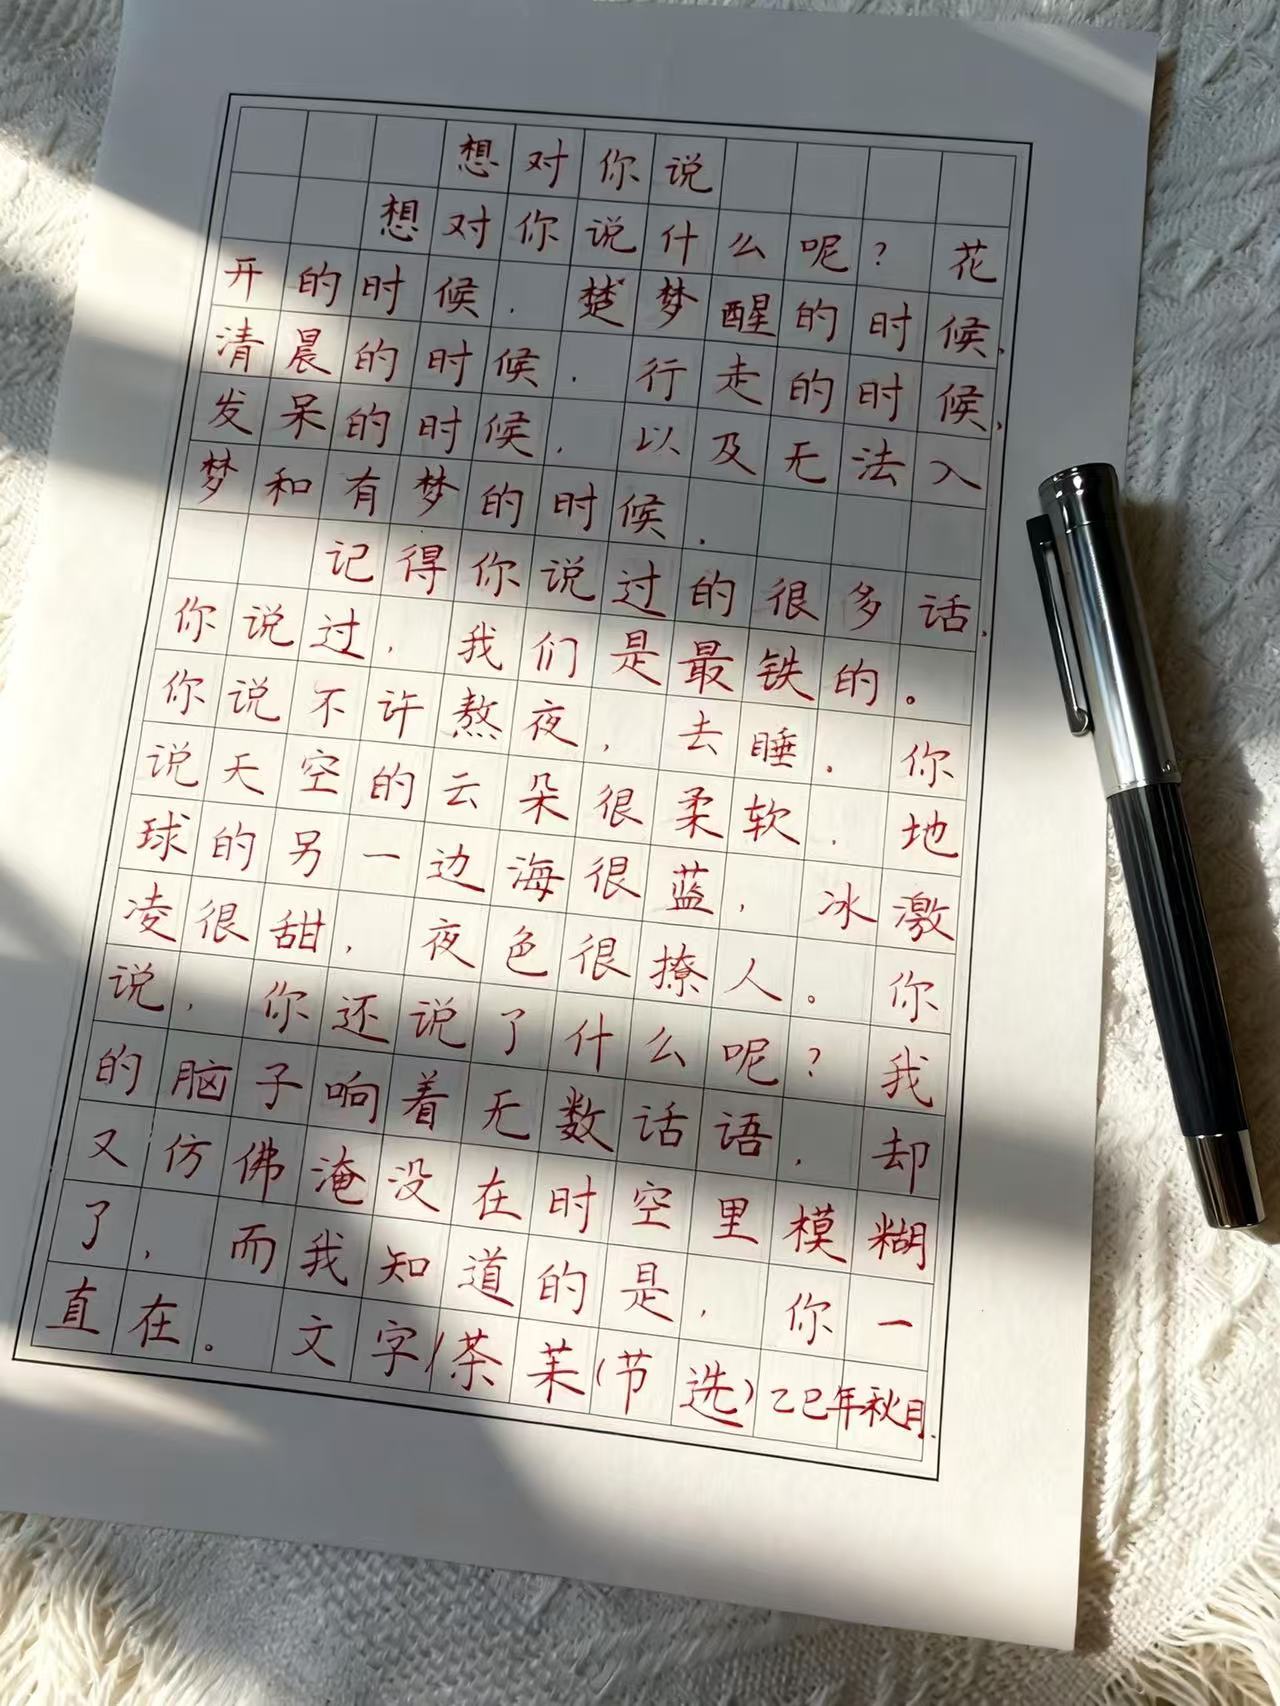 想对你说
想对你说什么呢？花
开的时候，楚梦醒的时候，
清晨的时候，行走的时候，
发呆的时候，以及无法入
梦和有梦的时候.
记得你说过的很多话，
你说过，我们是最铁的。
你说不许熬夜，去睡，你
说天空的云朵很柔软，地
球的另一边海很蓝，冰激
凌很甜，夜色很撩人。你
说，你还说了什么呢？我
的脑子响着无数话语，却
又仿佛淹没在时空里模糊
了，而我知道的是，你一
直在。文字/茶茉(节选)乙巳年秋月.